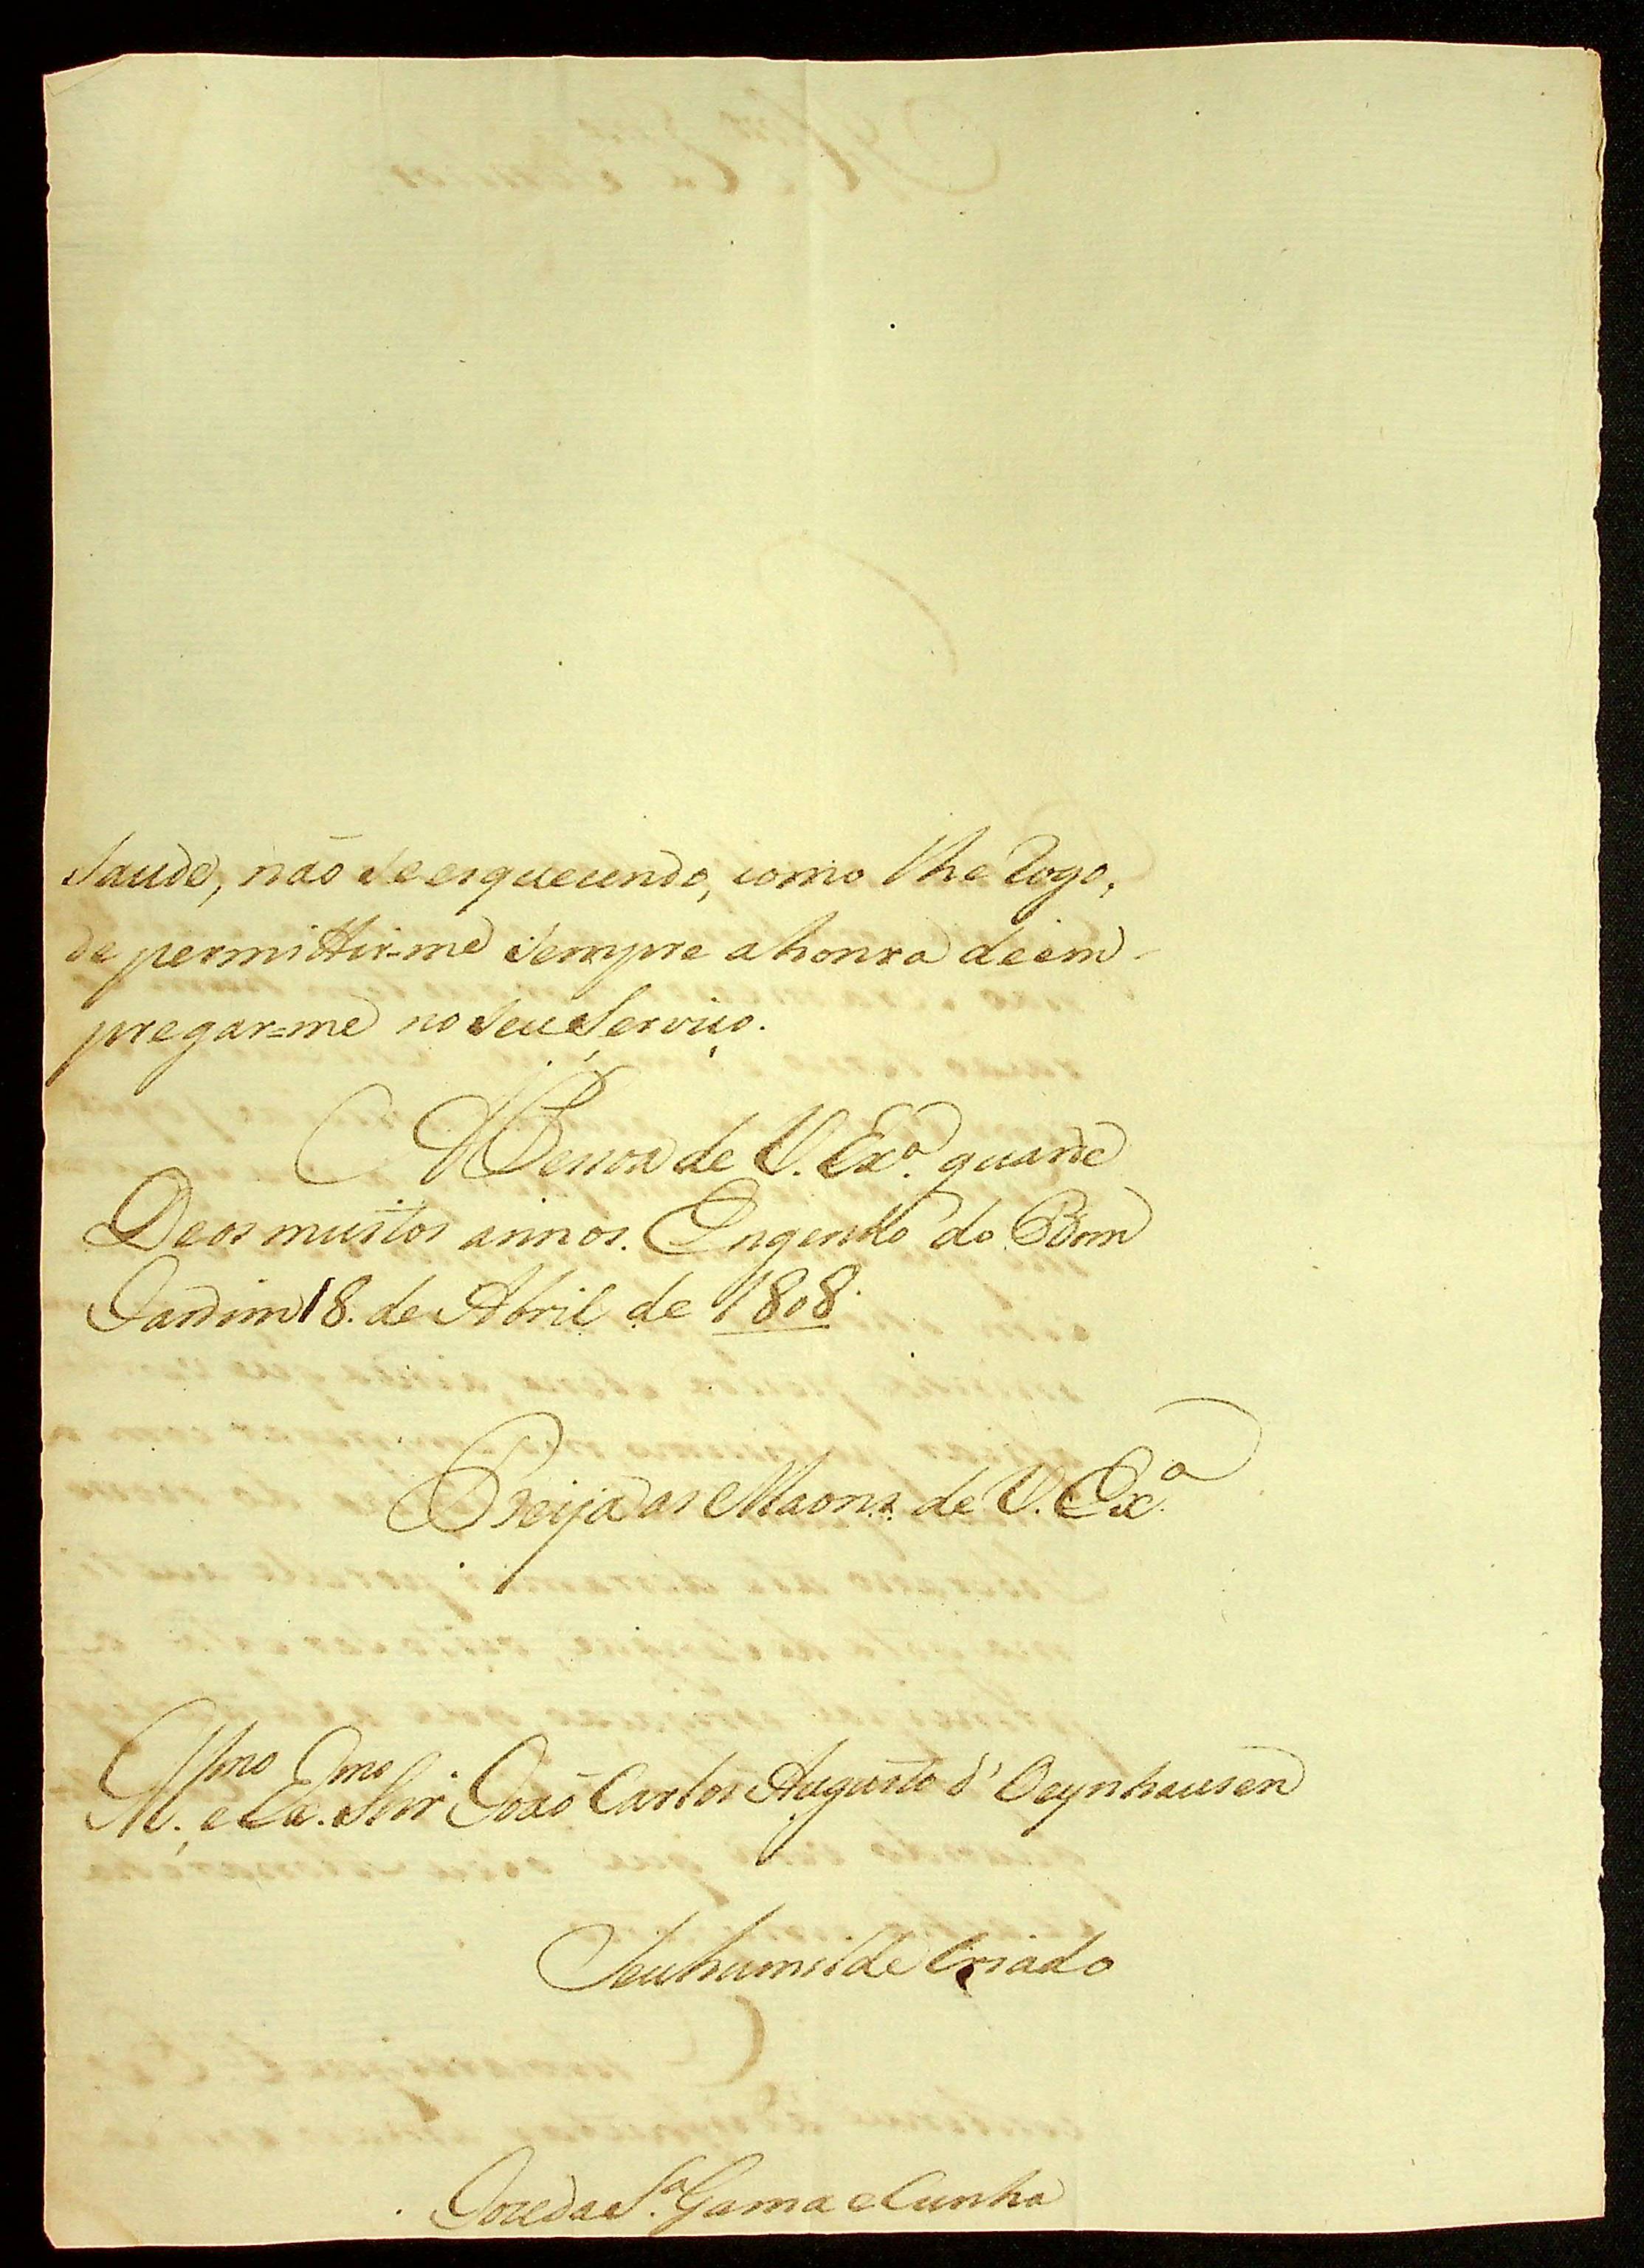 Saude, não se esquecendo, como lhe Rogo,
de permittir-me sempre a honra de em-
pregar=me no seu Serviço.
A Pessoa de V. Exª. guarde
Deos muitos annos. Engenho do Bom
Jardim 18. de Abril de 1808.
Beija as Maons. de V. Exª.
Illmo e Exmo. Snr João Carlos Augusto d'Oeynhausen
Seu humilde Criado
Joze da Sª. Gama e Cunha